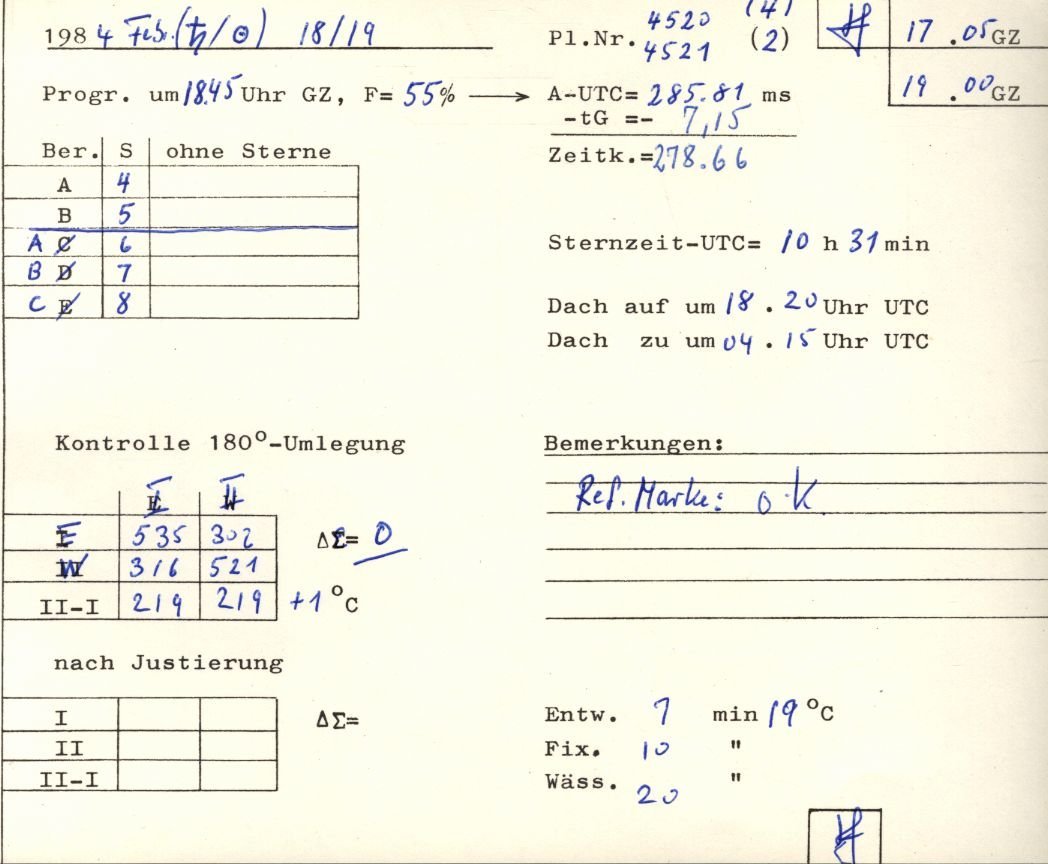 1984 Febr. (♄/☉) 18/19
Pl.Nr. 4520 (4)
4521 (2)
17.05 GZ
19.00 GZ
Progr. um 18.45 Uhr GZ, F= 55% → A-UTC= 285.81 ms
-tG =- 7,15
Zeitk.= 278.66
Ber. S ohne Sterne
A 4
B 5
A C 6
B D 7
C E 8
Sternzeit-UTC= 10 h 31 min
Dach auf um 18.20 Uhr UTC
Dach zu um 04.15 Uhr UTC
Kontrolle 180°-Umlegung
I II
E 535 302
W 316 521
II-I 219 219 +1 °C
ΔΣ= 0
Bemerkungen:
Ref. Marke: o.K.
nach Justierung
I
II
II-I
ΔΣ=
Entw. 7 min 19 °C
Fix. 10 "
Wäss. 20 "